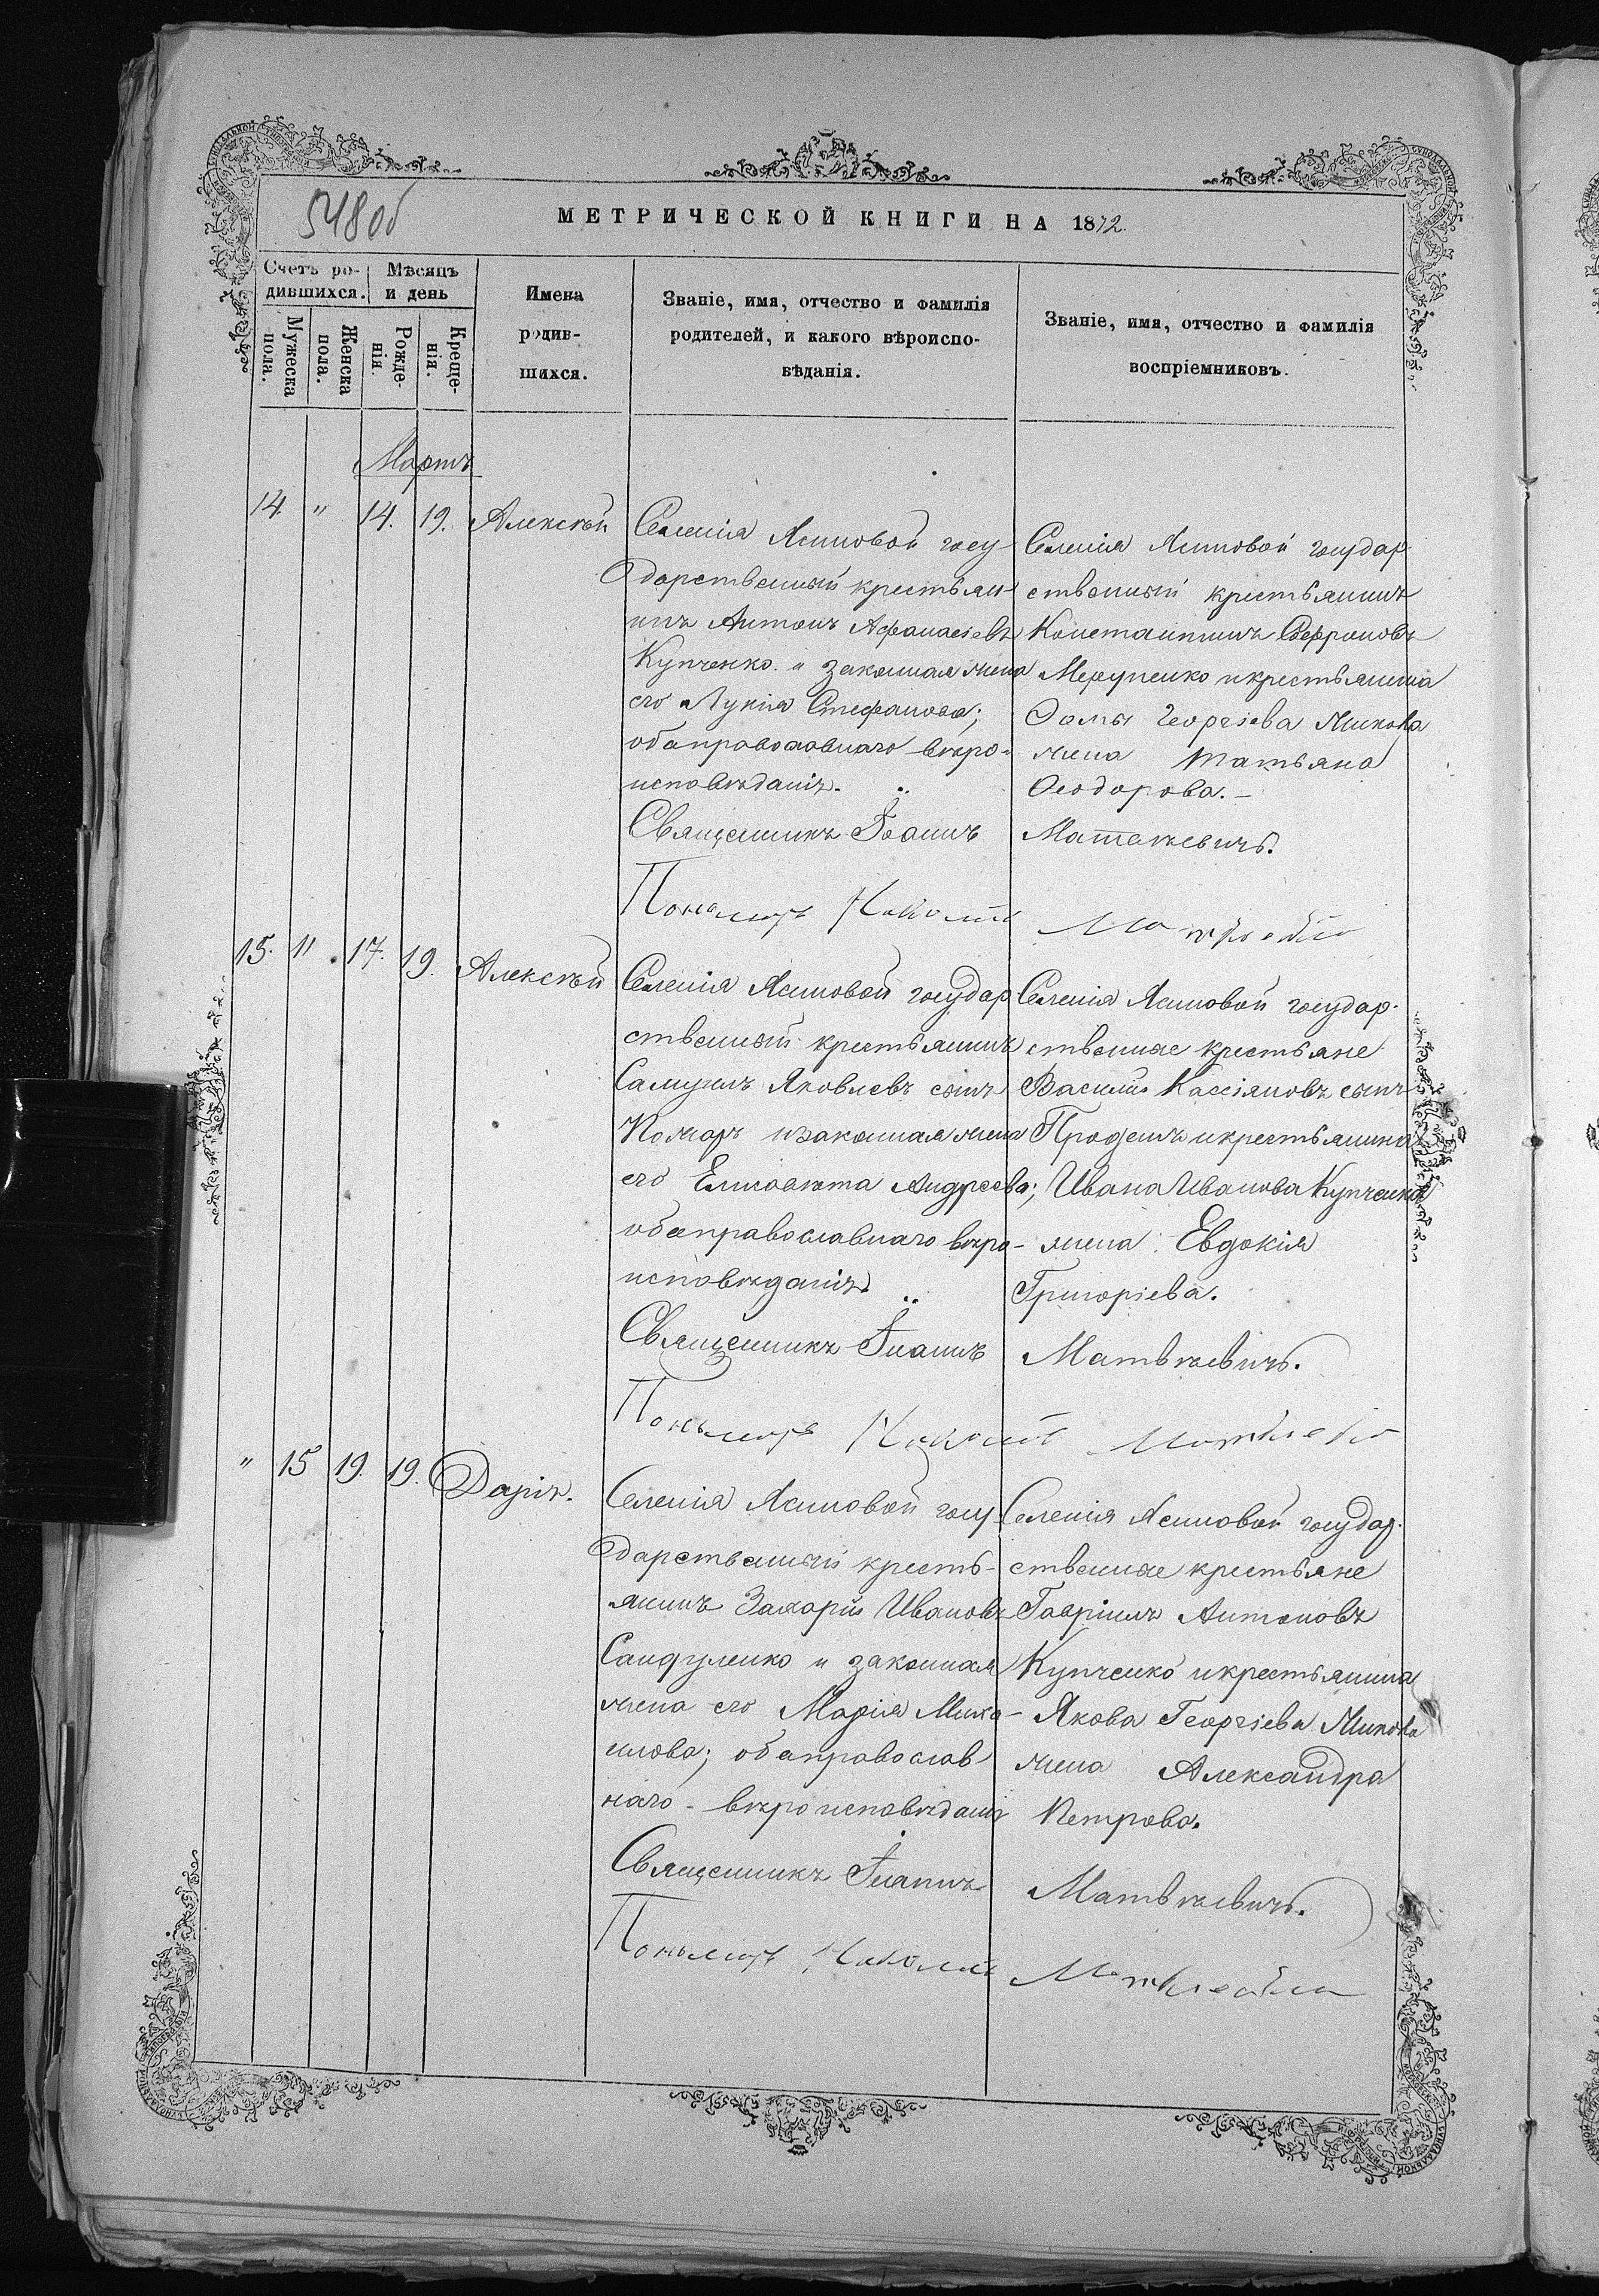 548об
МЕТРИЧЕСКОЙ КНИГИ НА 1872.
Счетъ ро-
дившихся.
Мѣсяцъ
и день
Мужеска
пола.
Женска
пола.
Рожде-
нія.
Креще-
нія.
Имена
родив-
шихся.
Званіе, имя, отчество и фамилія
родителей, и какого вѣроиспо-
вѣданія.
Званіе, имя, отчество и фамилія
воспріемниковъ.
Мартъ
14. " 14. 19. Алексѣй
Селенія Ясиновой госу-
дарственный крестьян-
инъ Антонъ Афанасіевъ
Купченко и законная жена
его Лукія Стефанова;
оба православнаго вѣро-
исповѣданія.
Священникъ Іоаннъ
Пономарь Николай
Селенія Ясиновой государ-
ственный крестьянинъ
Константинъ Софроновъ
и крестьянина
Ѳомы Георгіева
жена Татьяна
Ѳеодорова.-
Матвѣевичъ.
15. " 17. 19. Алексѣй
Селенія Ясиновой государ
ственный крестьянинъ
Самуилъ Яковлевъ сынъ
и законная жена
его Елисавета Андреева;
оба православнаго вѣро-
исповѣданія.
Священникъ Іоаннъ
Пономарь Николай
Селенія Ясиновой государ-
ственные крестьяне
Василій Кассіановъ сынъ
и крестьянина
Ивана Иванова Купченка
жена Евдокія
Григоріева.
Матвѣевичъ.
" 15 19. 19. Дарія.
Селенія Ясиновой госу-
дарственный кресть-
янинъ Захарій Ивановъ
Сандуленко и законная
жена его Марія Миха-
илова; оба православ
наго вѣроисповѣданія
Священникъ Іоаннъ
Пономарь Николай
Селенія Ясиновой государ-
ственные крестьяне
Гавріилъ Антоновъ
Купченко и крестьянина
Якова Георгіева
жена Александра
Петрова.
Матвѣевичъ.